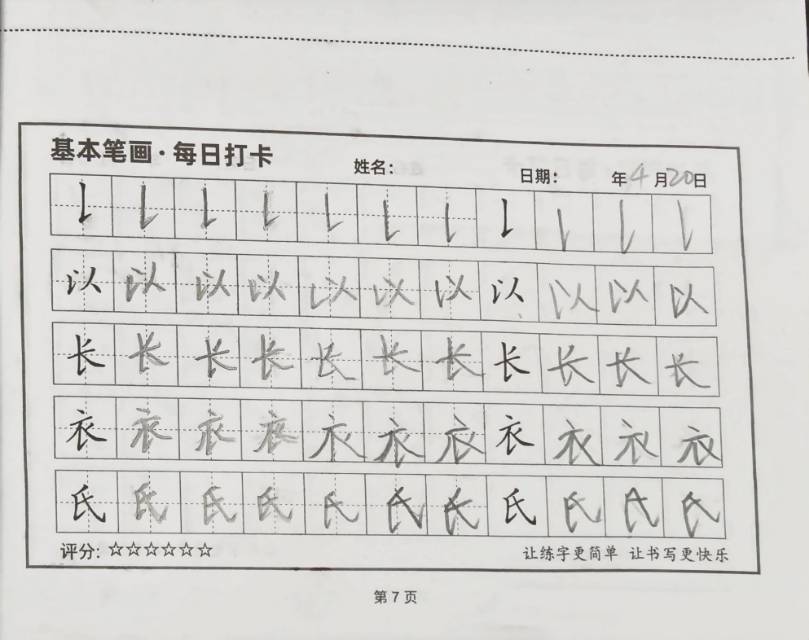 基本笔画·每日打卡
姓名: 日期: 年4月20日
以以以以以以以以以以以
长长长长长长长长长长长
衣衣衣衣衣衣衣衣衣衣衣
氏氏氏氏氏氏氏氏氏氏氏
评分:☆☆☆☆☆☆ 让练字更简单 让书写更快乐
第7页